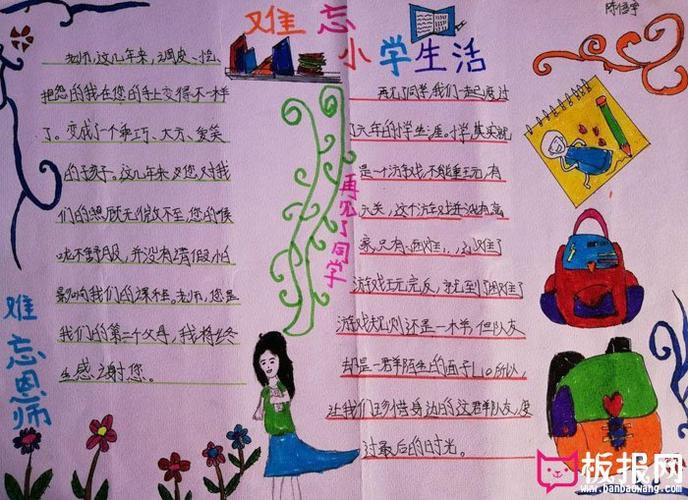 难忘小学生活
陈悟宇
老师,这几年来,调皮、捣
把您的我在您的手上变得不一样
了。变成了个乖巧、大方、爱笑
的子孩子。这几年来 您对我
们的照顾无微不至,您的喉
咙不舒服,并没有请假怕
影响我们的课程。老师,您是
我们的第二个父母,我将终
生感谢您。
难忘恩师
再见了同学
再见了同学,我们一起已度过
了六年的小学生涯。小学,其实就
是一个游戏,不能重玩,有
六关,这个游戏并没有赢
家,只有
游戏玩完后,就至
游戏规则还是一木羊,但队友
却是一君羊陌生的面子L。所以,
让我们珍惜身边的这君羊队友,度
过最后的时光。
板报网
www.banbaowang.com